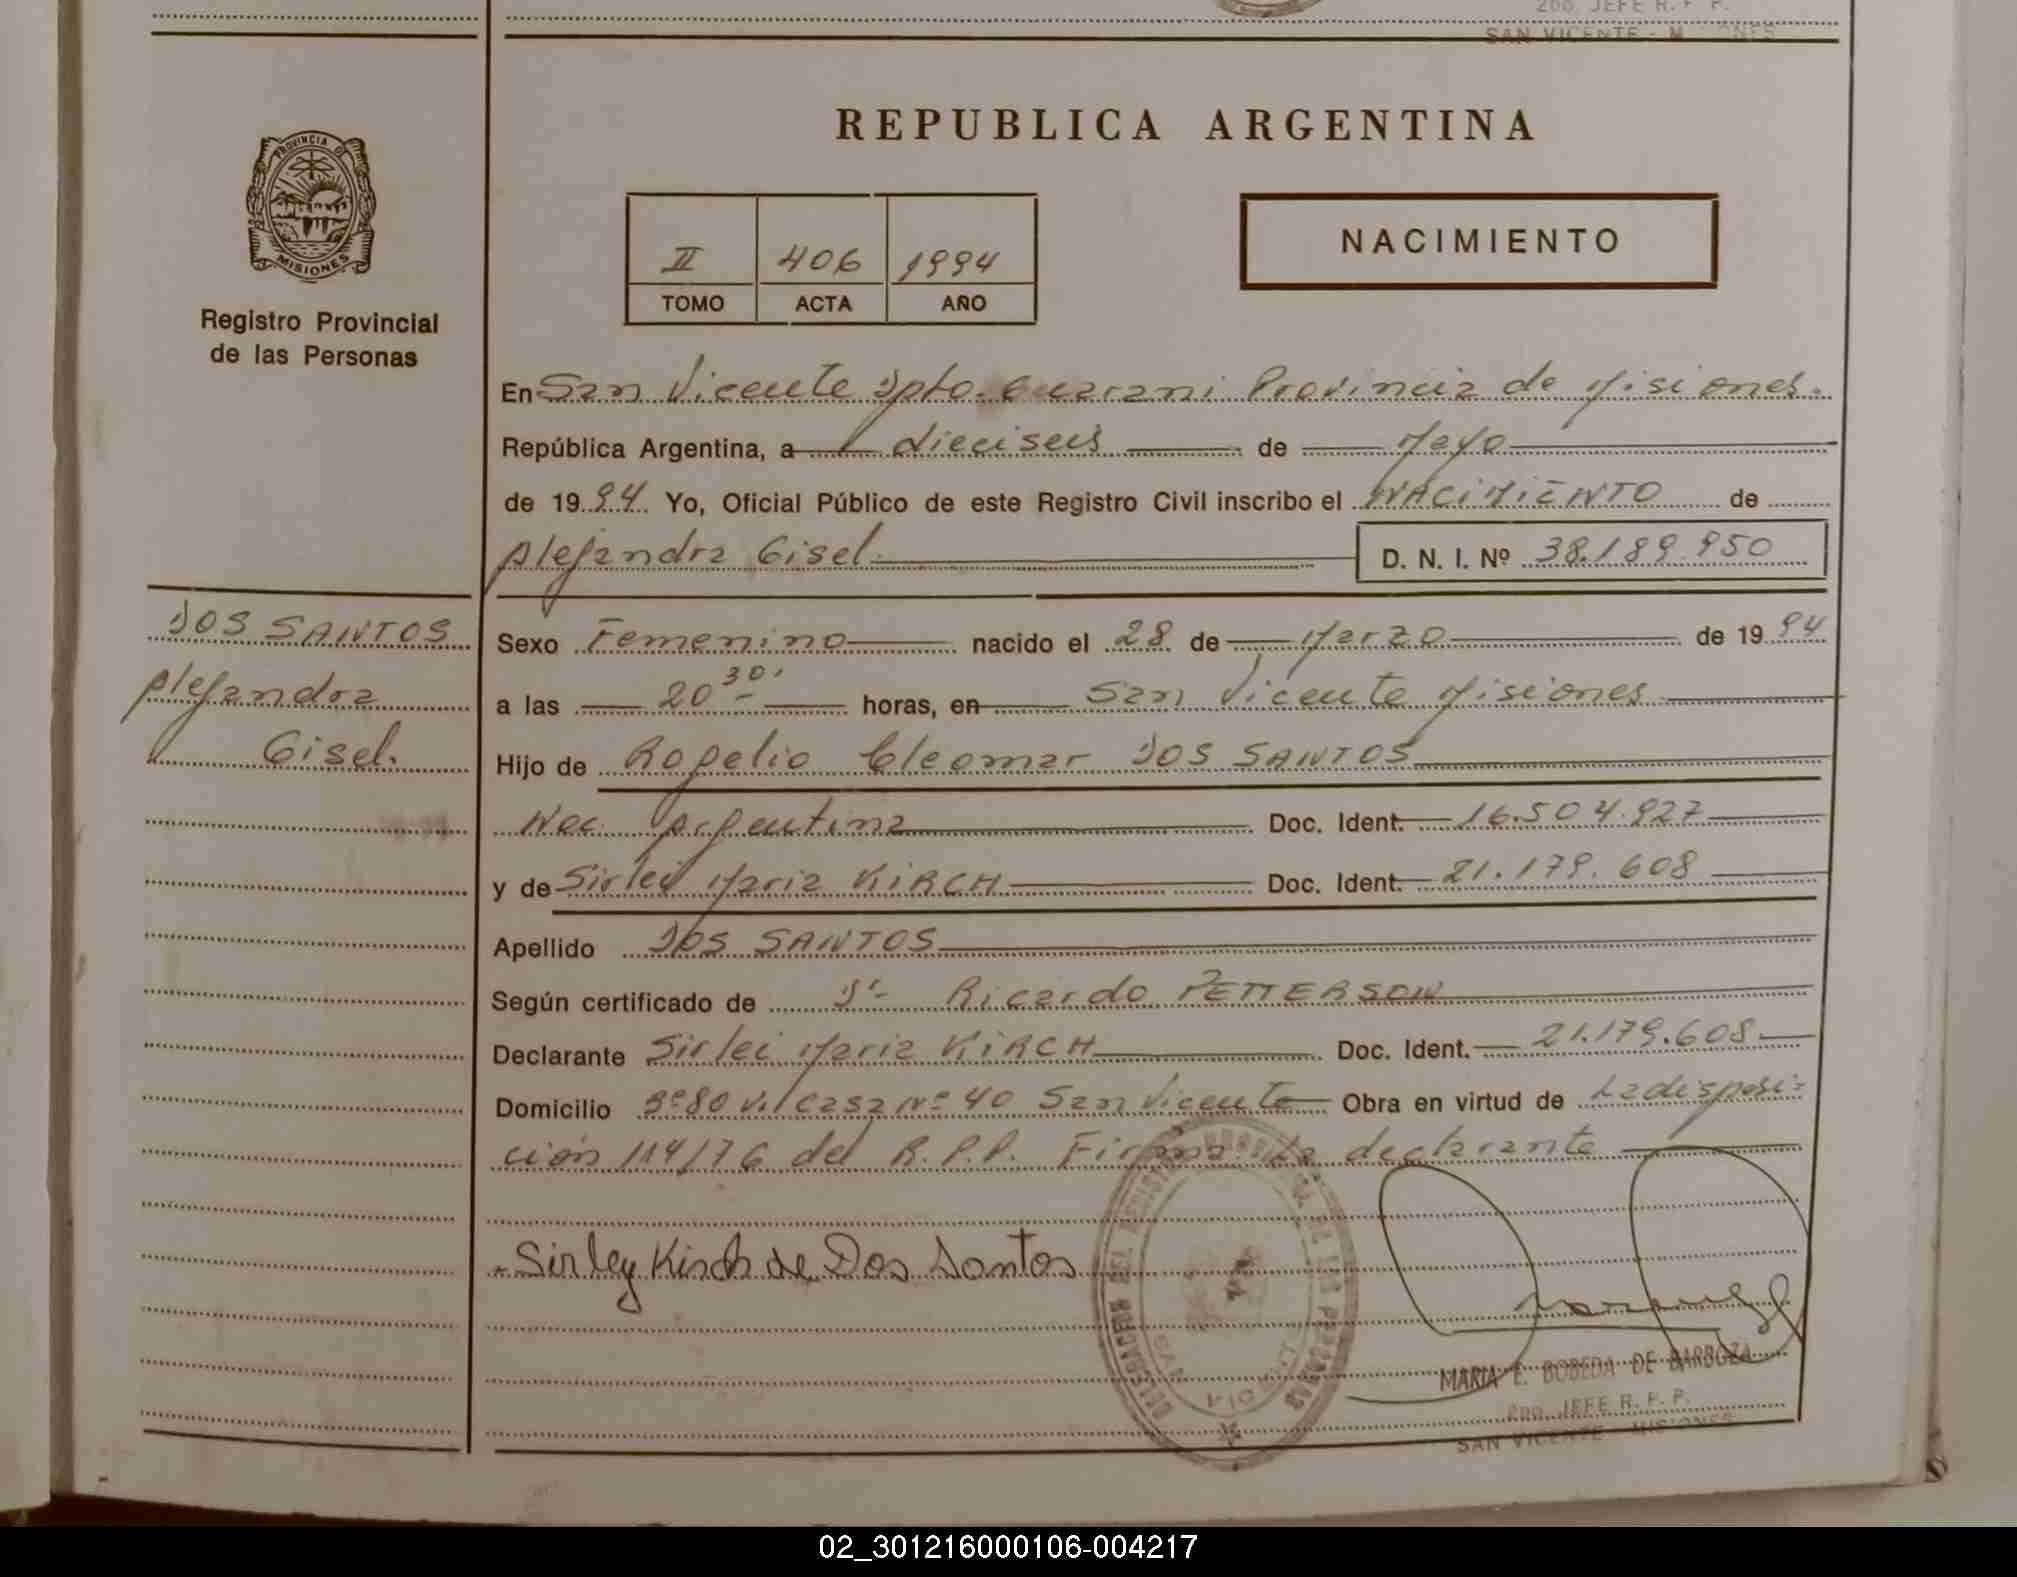 2do. JEFE R. P. P.
SAN VICENTE - MISIONES
PROVINCIA DE
MISIONES
Registro Provincial
de las Personas
REPUBLICA ARGENTINA
II 406 1994
TOMO ACTA AÑO
NACIMIENTO
En San Vicente Dpto. Guarani Provincia de Misiones.
República Argentina, a dieciseis de Mayo
de 1994. Yo, Oficial Público de este Registro Civil inscribo el NACIMIENTO de
Alejandra Gisel. D. N. I. Nº 38.189.950
DOS SANTOS
Alejandra
Gisel.
Sexo Femenino nacido el 28 de Marzo de 1994
a las 20 30' horas, en San Vicente Misiones
Hijo de Rogelio Cleomar DOS SANTOS
Nac. Argentina Doc. Ident. 16.504.927
y de Sirlei Maria KIRCH Doc. Ident. 21.179.608
Apellido DOS SANTOS
Según certificado de Dr- Ricardo PETTERSON
Declarante Sirlei Maria KIRCH Doc. Ident. 21.179.608
Domicilio Bº80 Vi. Casa Nº 40 San Vicente Obra en virtud de La disposi-
ción 114/76 del R.P.P. Firma La declarante
Sirley Kirch de Dos Santos
MARIA E. BOBEDA DE BARBOZA
2do. JEFE R. P. P.
SAN VICENTE - MISIONES
02_301216000106-004217